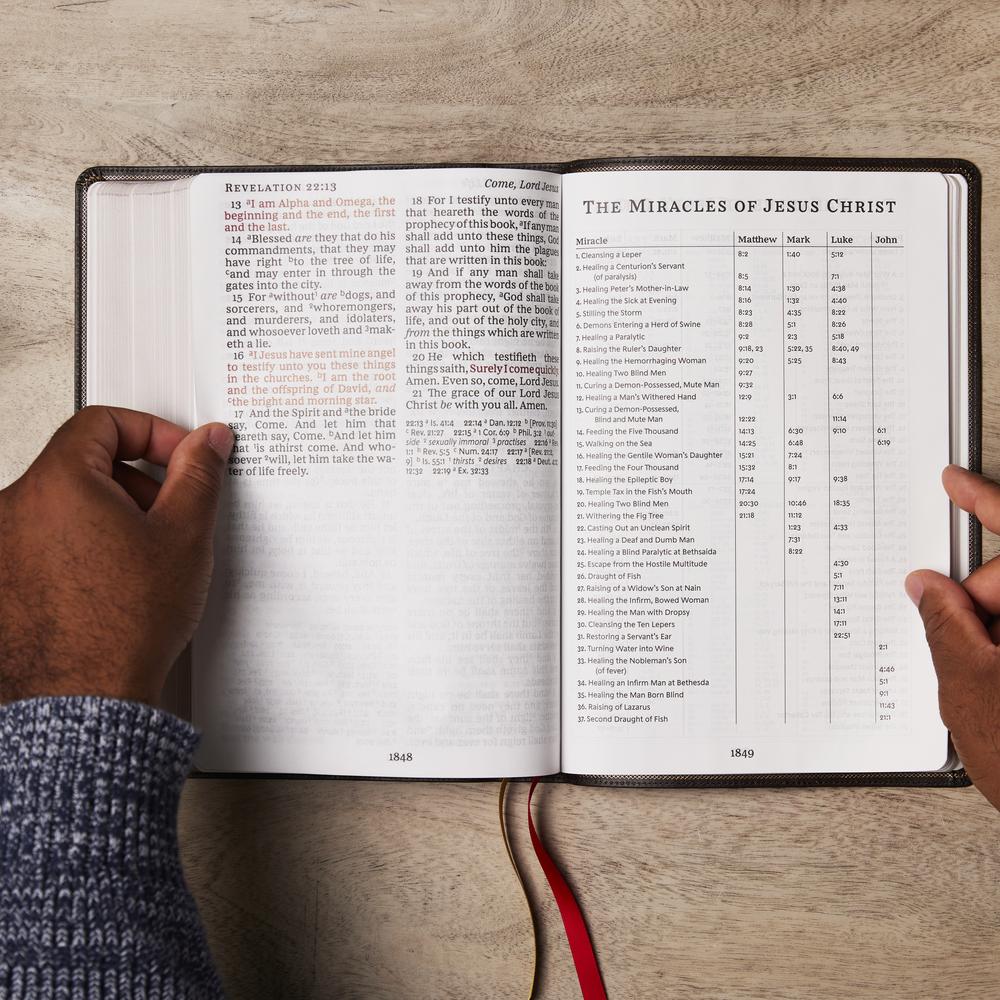 REVELATION 22:13
Come, Lord Jesus
13 ªI am Alpha and Omega, the
beginning and the end, the first
and the last.
14 ªBlessed are they that do his
commandments, that they may
have right ᵇto the tree of life,
ᶜand may enter in through the
gates into the city.
15 For ªwithout¹ are ᵇdogs, and
sorcerers, and ²whoremongers,
and murderers, and idolaters,
and whosoever loveth and ³mak-
eth a lie.
16 ªI Jesus have sent mine angel
to testify unto you these things
in the churches. ᵇI am the root
and the offspring of David, and
ᶜthe bright and morning star.
17 And the Spirit and ªthe bride
say, Come. And let him that
heareth say, Come. ᵇAnd let him
that ¹is athirst come. And who-
soever ²will, let him take the wa-
ter of life freely.
18 For I testify unto every man
that heareth the words of the
prophecy of this book, ªIf any man
shall add unto these things, God
shall add unto him the plagues
that are written in this book:
19 And if any man shall take
away from the words of the book
of this prophecy, ªGod shall take
away his part out of the book of
life, and out of the holy city, and
from the things which are written
in this book.
20 He which testifieth these
things saith, Surely I come quickly.
Amen. Even so, come, Lord Jesus.
21 The grace of our Lord Jesus
Christ be with you all. Amen.
22:13 ª Is. 41:4 22:14 ª Dan. 12:12 ᵇ [Prov. 11:30]
ᶜ Rev. 21:27 22:15 ª 1 Cor. 6:9 ᵇ Phil. 3:2 ¹ out-
side ² sexually immoral ³ practises 22:16 ª Rev.
1:1 ᵇ Rev. 5:5 ᶜ Num. 24:17 22:17 ª [Rev. 21:2,
9] ᵇ Is. 55:1 ¹ thirsts ² desires 22:18 ª Deut. 4:2;
12:32 22:19 ª Ex. 32:33
1848
THE MIRACLES OF JESUS CHRIST
Miracle Matthew Mark Luke John
1. Cleansing a Leper 8:2 1:40 5:12
2. Healing a Centurion's Servant
(of paralysis) 8:5 7:1
3. Healing Peter's Mother-in-Law 8:14 1:30 4:38
4. Healing the Sick at Evening 8:16 1:32 4:40
5. Stilling the Storm 8:23 4:35 8:22
6. Demons Entering a Herd of Swine 8:28 5:1 8:26
7. Healing a Paralytic 9:2 2:3 5:18
8. Raising the Ruler's Daughter 9:18, 23 5:22, 35 8:40, 49
9. Healing the Hemorrhaging Woman 9:20 5:25 8:43
10. Healing Two Blind Men 9:27
11. Curing a Demon-Possessed, Mute Man 9:32
12. Healing a Man's Withered Hand 12:9 3:1 6:6
13. Curing a Demon-Possessed,
Blind and Mute Man 12:22 11:14
14. Feeding the Five Thousand 14:13 6:30 9:10 6:1
15. Walking on the Sea 14:25 6:48 6:19
16. Healing the Gentile Woman's Daughter 15:21 7:24
17. Feeding the Four Thousand 15:32 8:1
18. Healing the Epileptic Boy 17:14 9:17 9:38
19. Temple Tax in the Fish's Mouth 17:24
20. Healing Two Blind Men 20:30 10:46 18:35
21. Withering the Fig Tree 21:18 11:12
22. Casting Out an Unclean Spirit 1:23 4:33
23. Healing a Deaf and Dumb Man 7:31
24. Healing a Blind Paralytic at Bethsaida 8:22
25. Escape from the Hostile Multitude 4:30
26. Draught of Fish 5:1
27. Raising of a Widow's Son at Nain 7:11
28. Healing the Infirm, Bowed Woman 13:11
29. Healing the Man with Dropsy 14:1
30. Cleansing the Ten Lepers 17:11
31. Restoring a Servant's Ear 22:51
32. Turning Water into Wine 2:1
33. Healing the Nobleman's Son
(of fever) 4:46
34. Healing an Infirm Man at Bethesda 5:1
35. Healing the Man Born Blind 9:1
36. Raising of Lazarus 11:43
37. Second Draught of Fish 21:1
1849